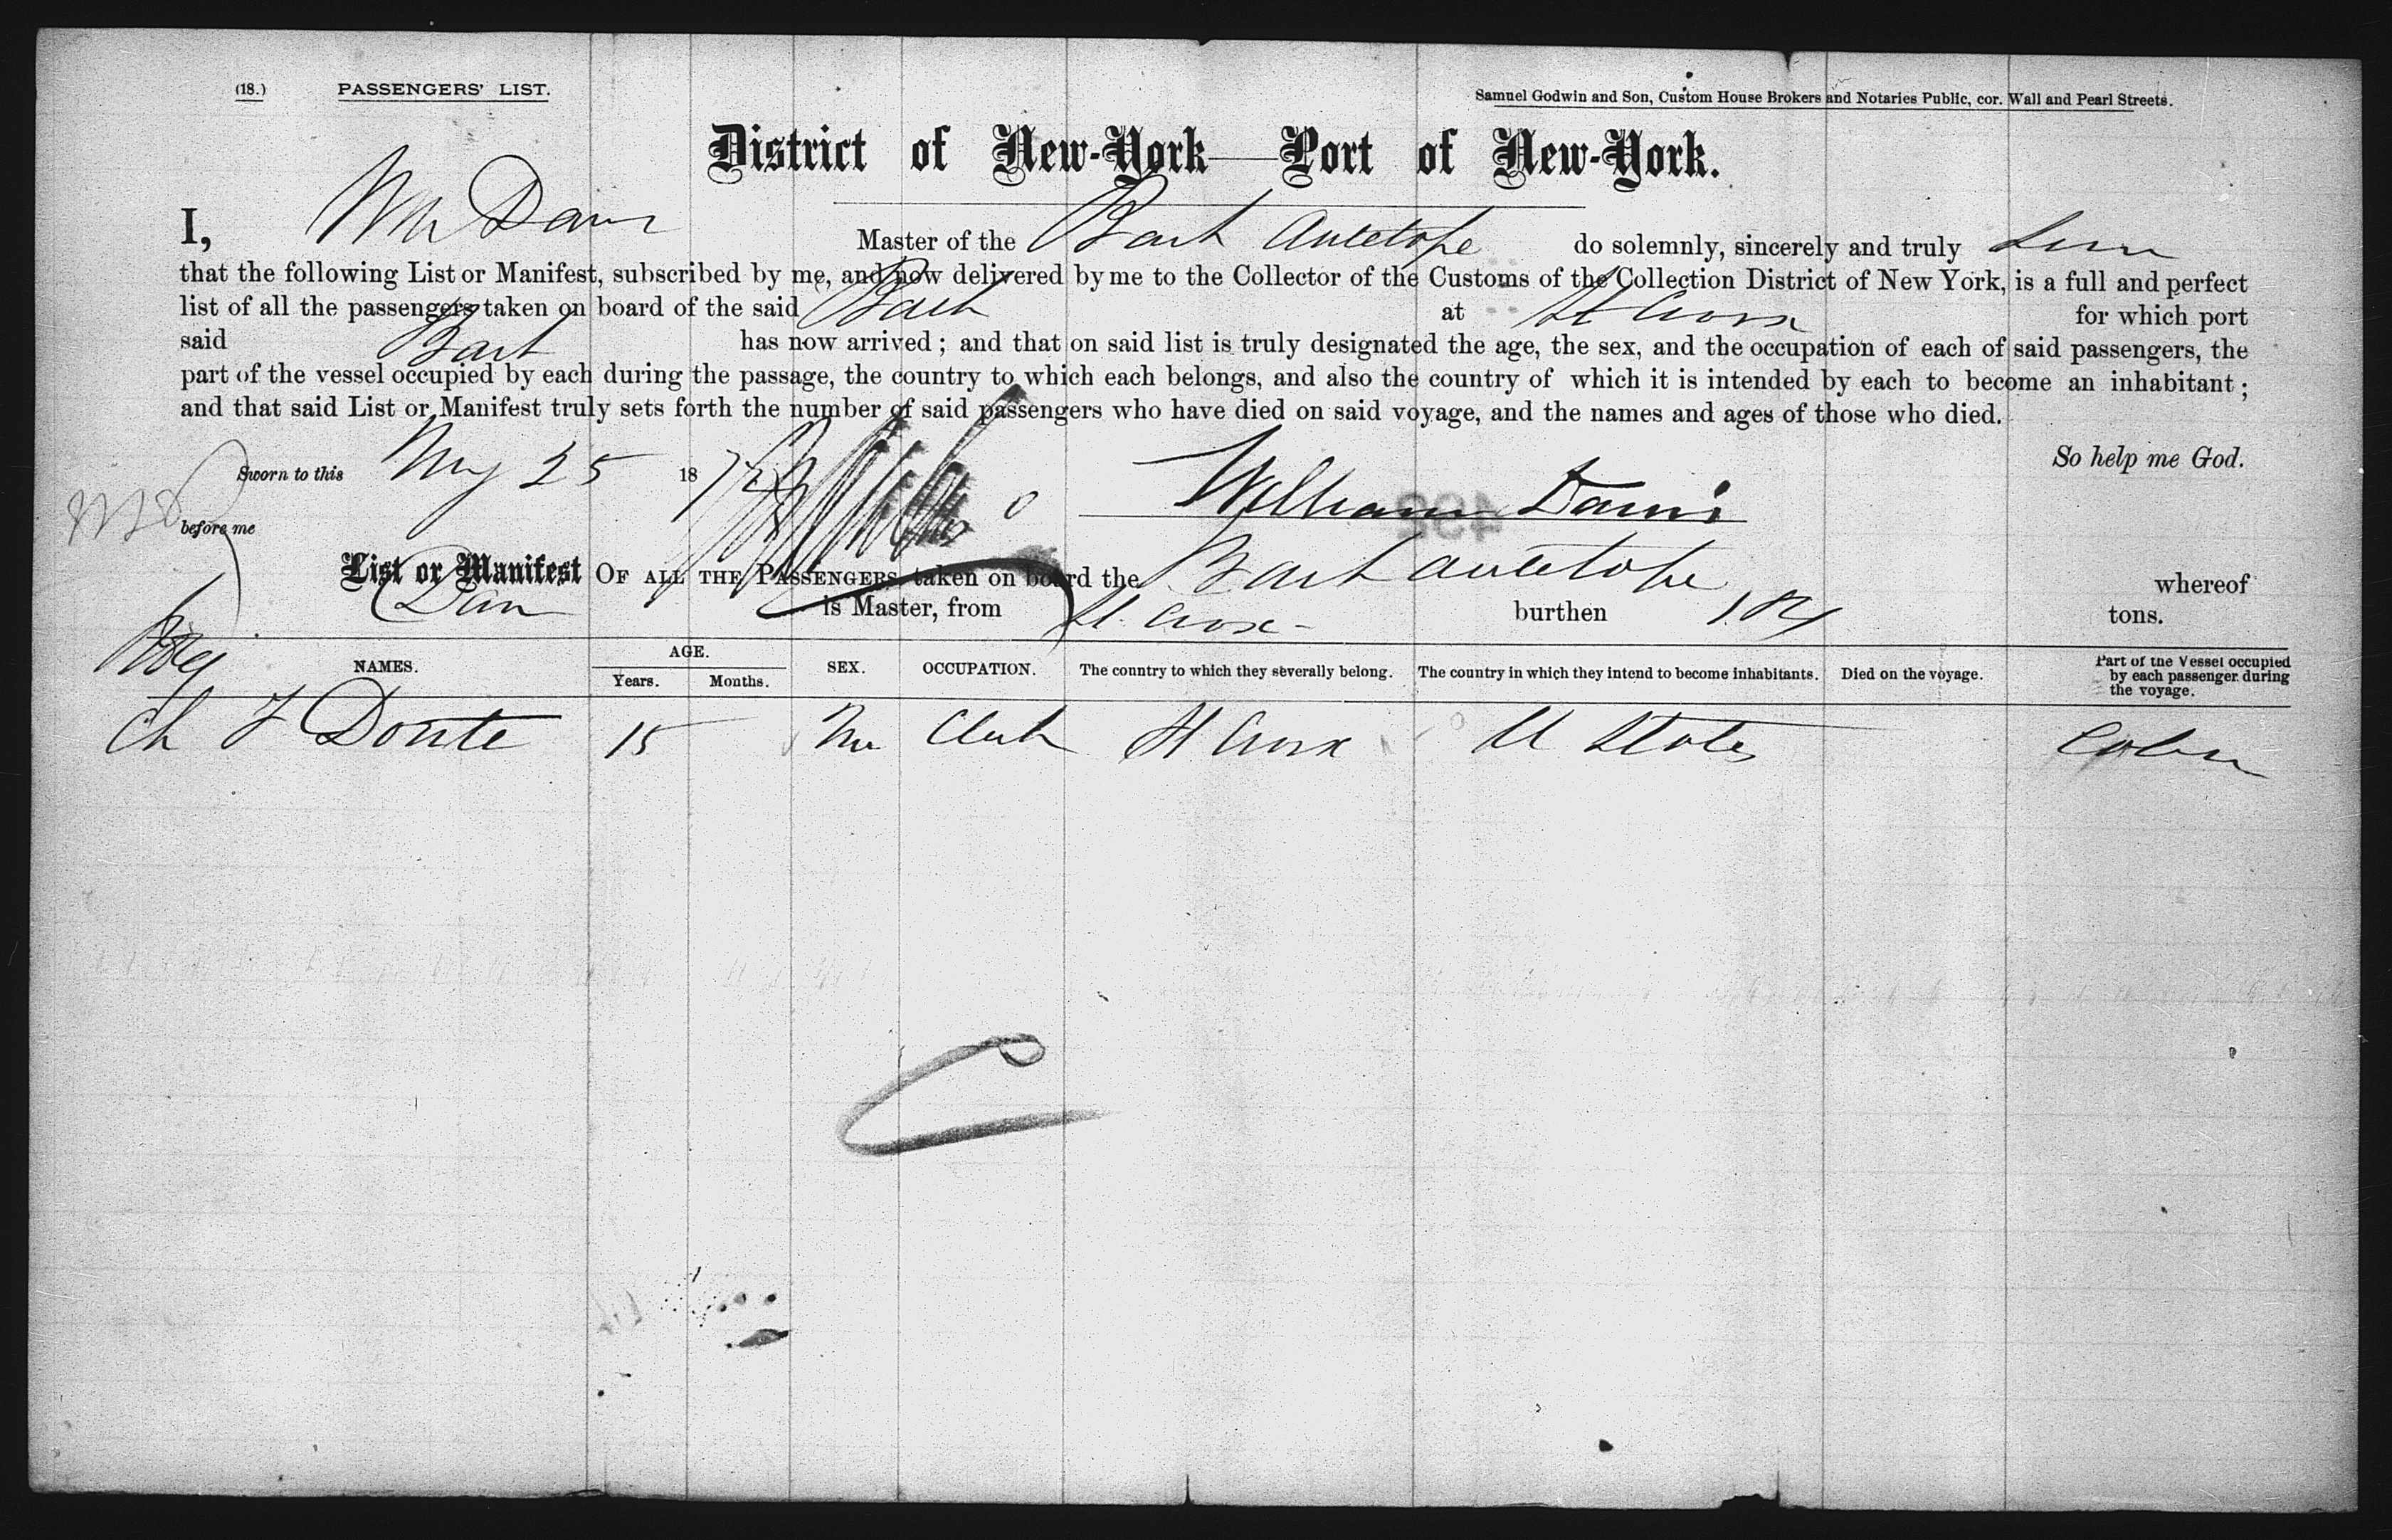 (18.) PASSENGERS' LIST.
Samuel Godwin and Son, Custom House Brokers and Notaries Public, cor. Wall and Pearl Streets.
District of New-York—Port of New-York.
I, Wm Davis Master of the Bark Antelope do solemnly, sincerely and truly
that the following List or Manifest, subscribed by me, and now delivered by me to the Collector of the Customs of the Collection District of New York, is a full and perfect
list of all the passengers taken on board of the said Bark at St Croix for which port
said Bark has now arrived ; and that on said list is truly designated the age, the sex, and the occupation of each of said passengers, the
part of the vessel occupied by each during the passage, the country to which each belongs, and also the country of which it is intended by each to become an inhabitant ;
and that said List or Manifest truly sets forth the number of said passengers who have died on said voyage, and the names and ages of those who died.
So help me God.
Sworn to this May 25 18
before me William Davis
List or Manifest OF ALL THE PASSENGERS taken on board the Bark Antelope whereof
is Master, from St. Croix burthen tons.
NAMES. AGE. Years. Months. SEX. OCCUPATION. The country to which they severally belong. The country in which they intend to become inhabitants. Died on the voyage. Part of the Vessel occupied by each passenger during the voyage.
Ch F Donte 15 M Clerk St Croix U States Cabin